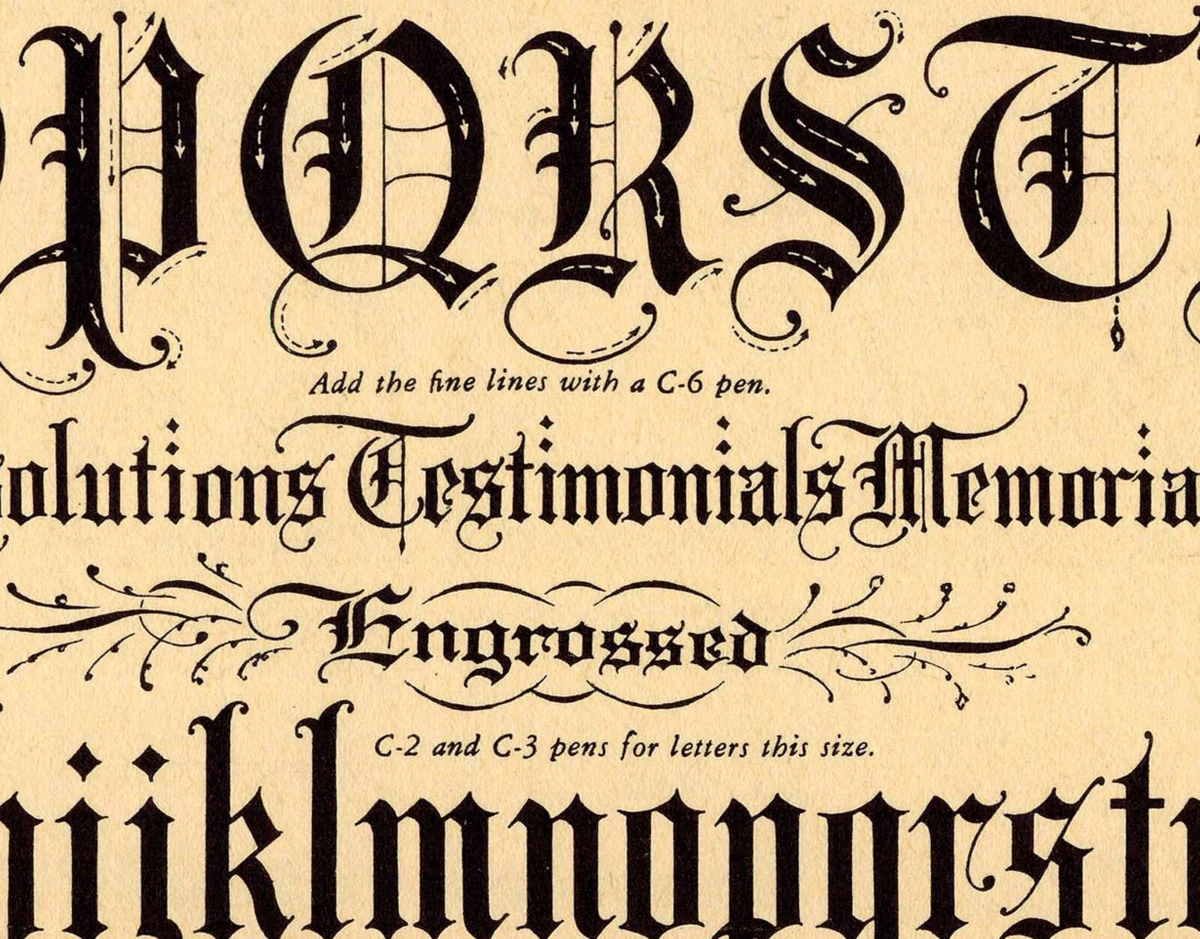 PQRST
Add the fine lines with a C-6 pen.
solutions Testimonials Memoria
Engrossed
C-2 and C-3 pens for letters this size.
hijklmnopqrst